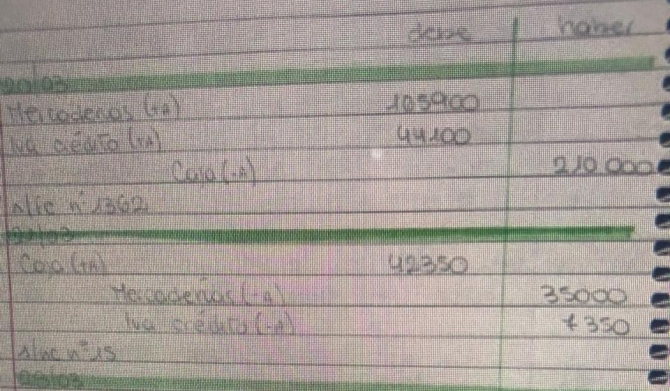 debe haber
20/03
Mercaderias (+A) 165900
Iva crédito (+A) 44100
Caja (-A) 210.000
n° 1362
Caja (+A) 42350
Mercaderias (-A) 35000
Iva crédito (-A) 7350
n° 15